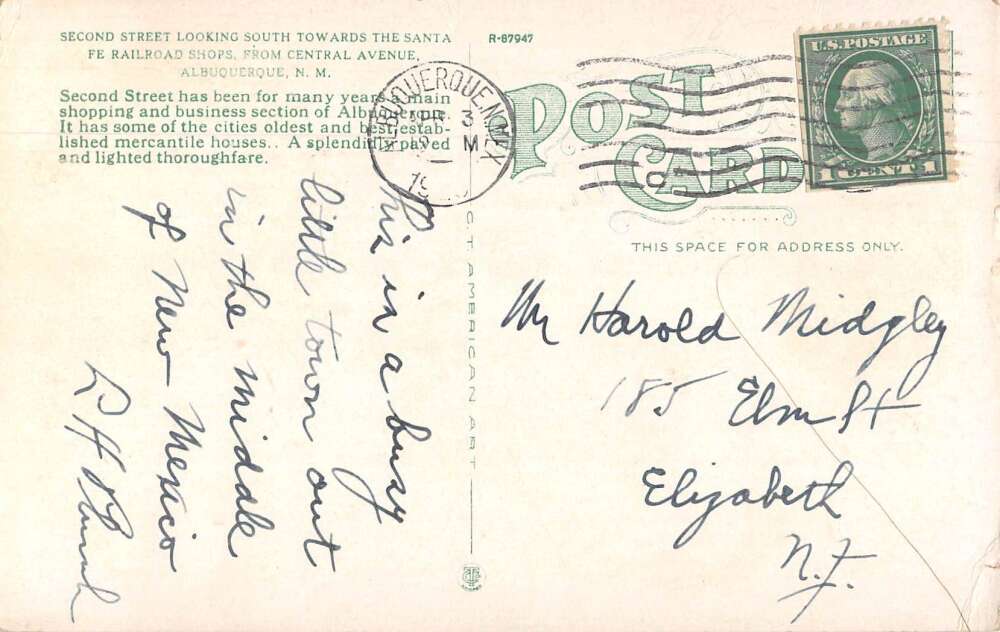 SECOND STREET LOOKING SOUTH TOWARDS THE SANTA
FE RAILROAD SHOPS, FROM CENTRAL AVENUE,
ALBUQUERQUE, N. M.
Second Street has been for many years main
shopping and business section of
It has some of the cities oldest and best estab-
lished mercantile houses.. A splendidly paved
and lighted thoroughfare.
This is a busy
little town out
in the middle
of New Mexico
L H
R-87947
POST
CARD
ALBUQUERQUE N. MEX
APR 3
M
19
U.S. POSTAGE
1 CENT 1
THIS SPACE FOR ADDRESS ONLY.
C. T. AMERICAN ART
Mr Harold Midgley
185 Elm St
Elizabeth
N.J.